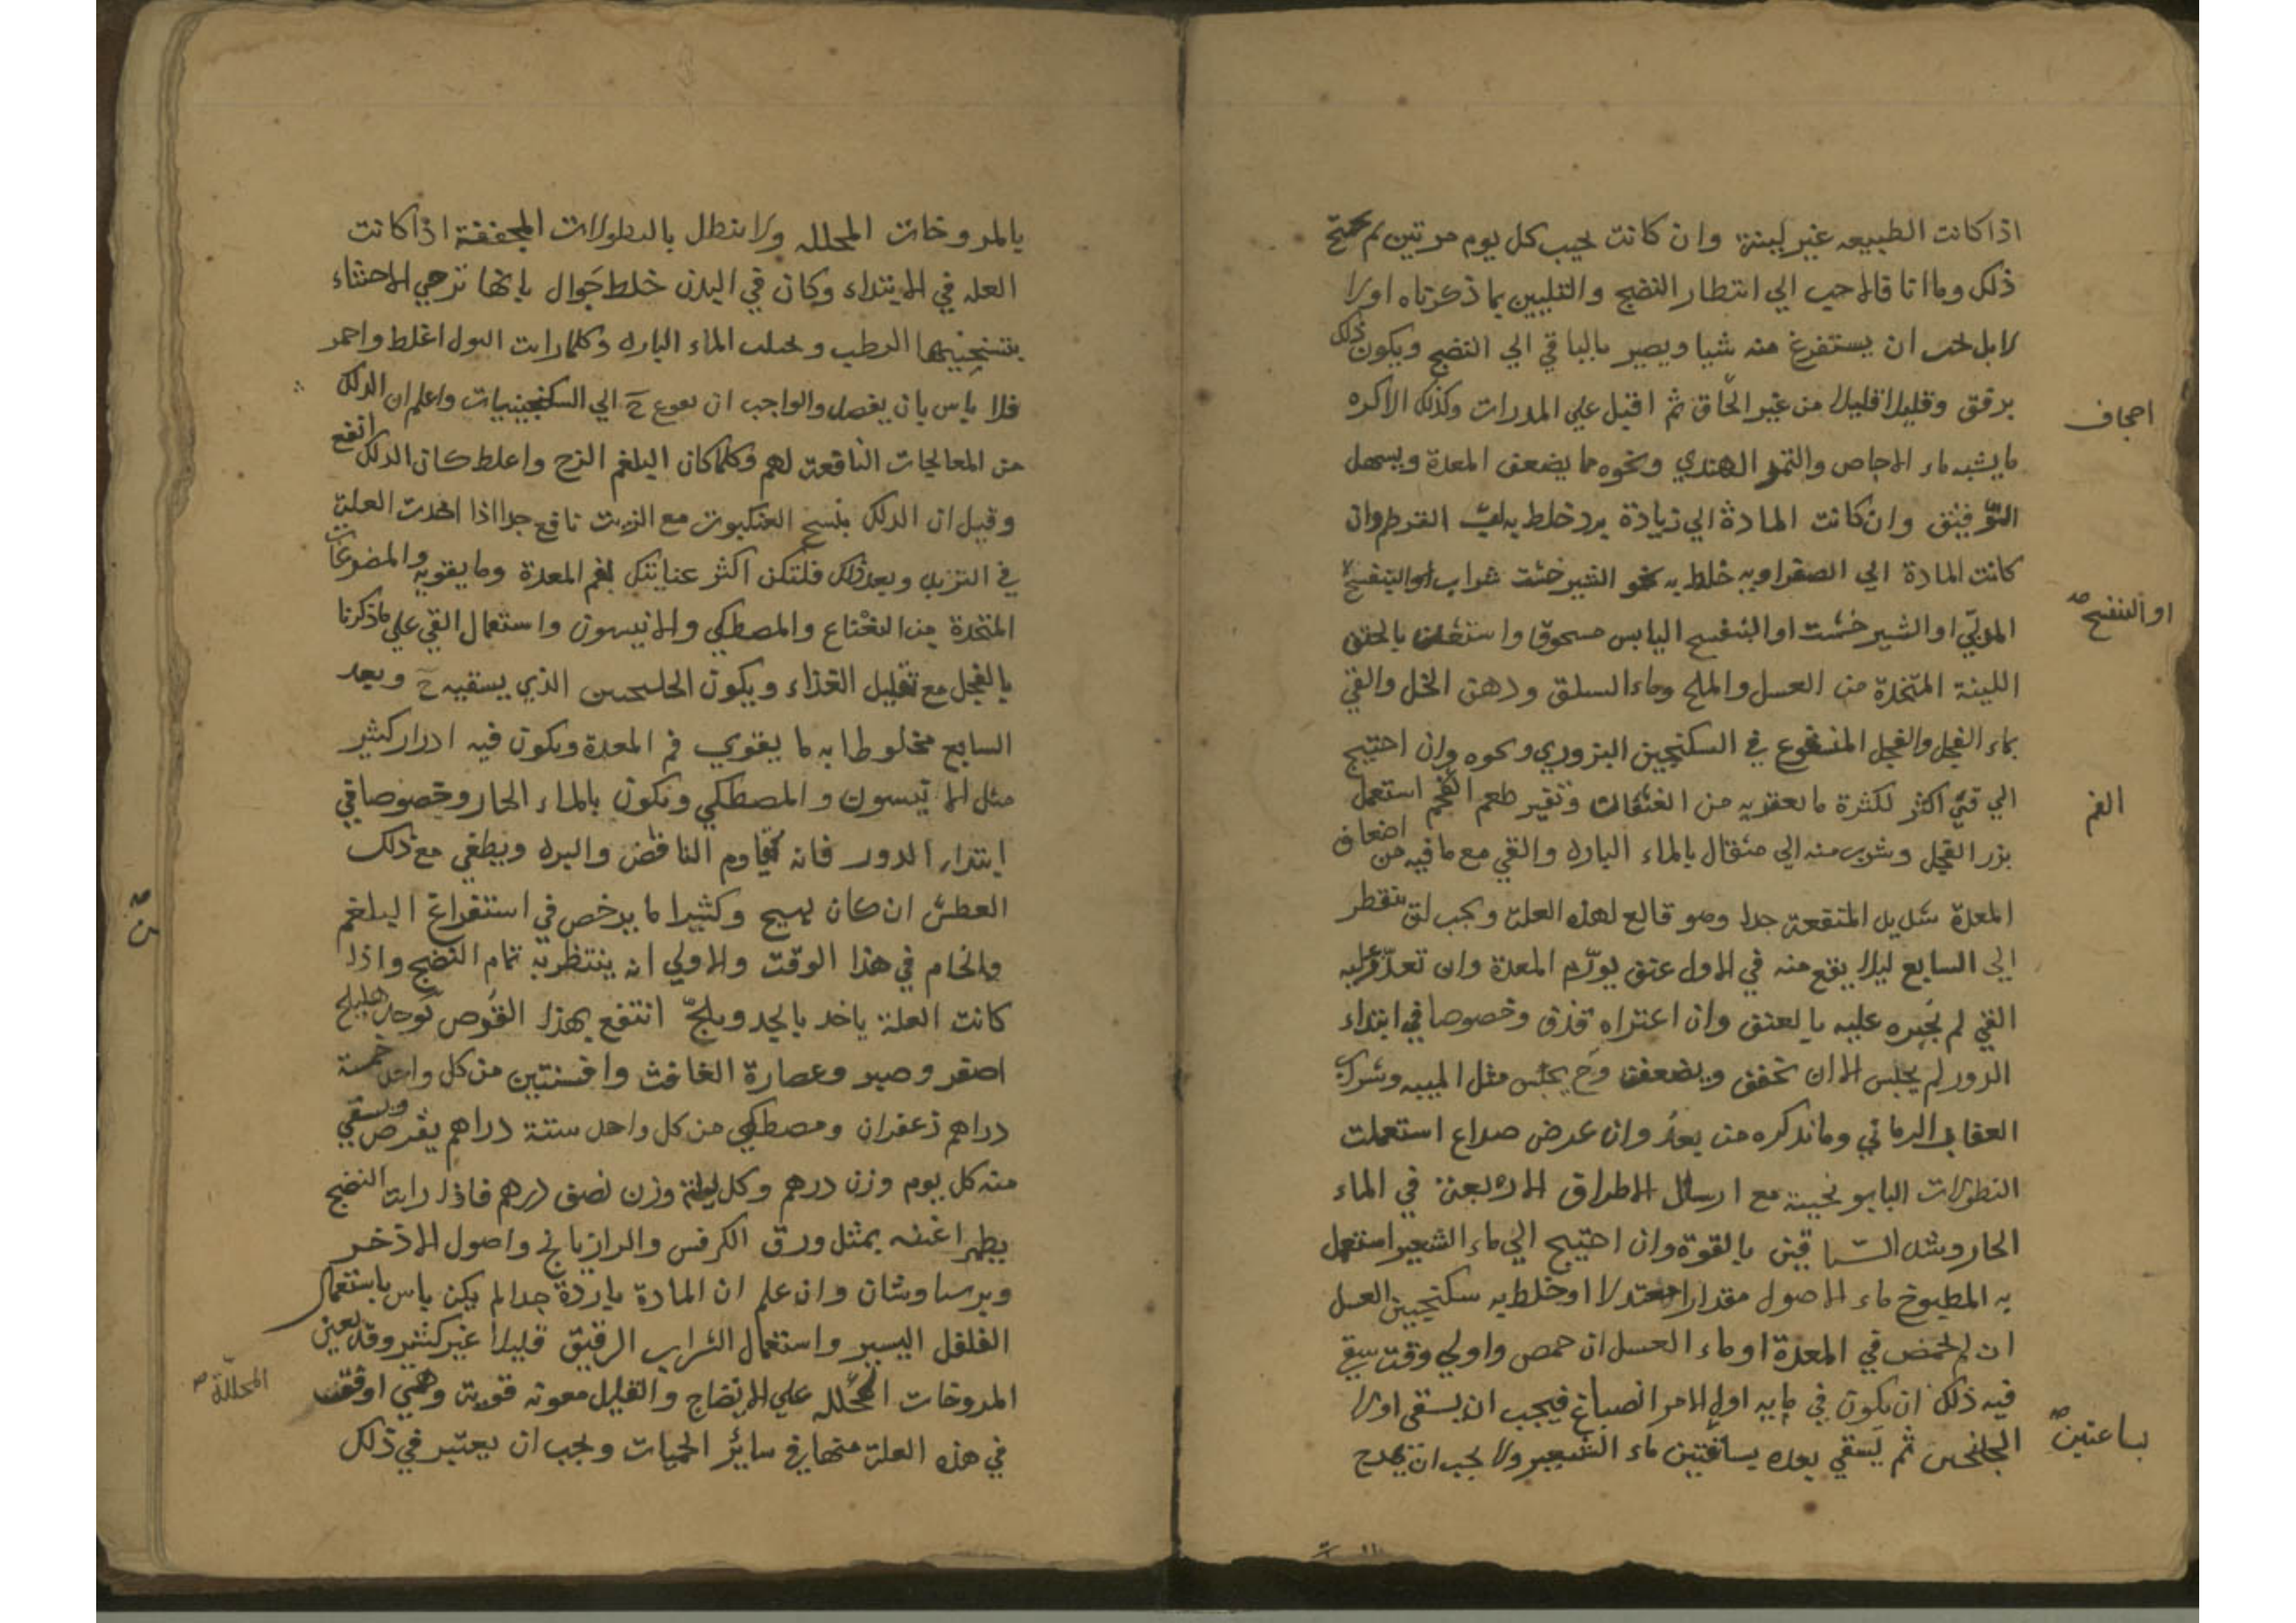 اذا كانت الطبيعه غير لينة وان كانت تجيب كل يوم مرتين لم تحتج
ذلك وما انا قالاحب الي انتطار النضج والتليين بما ذكرناه اولا
لا بل احب ان يستفرغ منه شيا ويصبر بالباقي الي النضج ويكون ذلك
برفق وقليلا قليلا من غير الحاق ثم اقبل علي المدرات وكذلك الاكره
احجاف
ما يشبه ماء الاجاص والتمر الهندي ونحوه مما يضعف المعدة ويسهل
الرقيق وان كانت المادة الي زيادة برد خلط به لب القرطم وان
كانت المادة الي الصفراويه خلط به نحو الشيرخشت شراب البنفسج
او البنفسج صح
المربي او الشيرخشت او البنفسج اليابس مسحوقا واستعملت بالحقن
اللينة المتخذة من العسل والملح وماء السلق ودهن الخل والقي
بماء الفجل والفجل المنقوع في السكنجبين البزوري ونحوه وان احتيج
الي قي اكثر لكثرة ما يعتريه من الغثيان وتغير طعم الفم استعمل
الفم
بزر الفجل وشرب منه الي مثقال بالماء البارد والقي مع ما فيه من اضعاف
المعدة شديد المنفعة جدا وهو قالع لهذه العلة ويجب ان تنتظر
الي السابع ليلا يقع منه في الاول عنق يورم المعدة وان تعذر عليه
القي لم يجبره عليه بالعنق وان اعتراه قذف وخصوصا في ابتداء
الدور لم يحبس الا ان يخفف ويضعف وح يحبس مثل الميبه وشراب
النعناع الرماني وما نذكره من بعد وان عرض صداع استعملت
النطولات البابونجية مع ارسال الاطراف الاربعة في الماء
الحار وشد الساقين بالقوة وان احتيج الي ماء الشعير استعمل
به المطبوخ ماء الاصول مقدارا معتدلا او خلط به سكنجبين العسل
ان لم تحمض في المعدة او ماء العسل ان حمص واولي وقت سقي
فيه ذلك ان يكون في مايه اول الامر انصباغ فيجب ان يسقى اولا
الجلنجبين ثم يسقي بعده بساعتين ماء الشعير ولا يجب ان يمرخ
بساعتين صح
بالمروخات المحلله ولا ينطل بالنطولات المجففة اذا كانت
العله في الابتداء وكان في البدن خلط جوال بانها ترخي الاحشاء
بتسخينها الرطب ويجلب الماء البارد وكلما رايت البول اغلظ واحمر
فلا باس بان يفصد والواجب ان يفزع ح الي السكنجبينات واعلم ان الدلك
من المعالجات النافعة لهم وكلما كان البلغم الزج واغلط كان الدلك انفع
وقيل ان الدلك بنسج العنكبوت مع الزيت نافع جدا اذا اخذت العلة
في التزيد وبعد ذلك فلتكن اكثر عنايتك بفم المعدة وما يقويه والمضوغات
المتخذة من النعناع والمصطكي والانيسون واستعمال القي علي ما ذكرنا
بالفجل مع تقليل الغذاء ويكون الجلنجبين الذي يسقيه ح وبعد
السابع مخلوطا به ما يقوي فم المعدة ويكون فيه ادرار كثير
مثل الانيسون والمصطكي ويكون بالماء الحار وخصوصا في
ابتداء الدور فانه يقاوم النافض والبرد ويطفي مع ذلك
العطش ان كان يهيج وكثيرا ما يرخص في استفراغ البلغم
والخام في هذا الوقت والاولي ان ينتظر به تمام النضج واذا
كانت العلة ياخذ بالجد ويلج انتفع بهذا القرص توخذ هليلج
اصفر وصبر وعصارة الغافث وافسنتين من كل واحد خمسة
دراهم زعفران ومصطكي من كل واحد ستة دراهم يقرص ويسقي
منه كل يوم وزن درهم وكل ليلة وزن نصف درهم فاذا رايت النضج
يظهر اعنه بمثل ورق الكرفس والرازيانج واصول الاذخر
وبرسياوشان وان علم ان المادة باردة جدا لم يكن باس باستعمال
الفلفل اليسير واستعمال الشراب الرقيق قليلا غير كثير وقد يعين
المروخات المحلله علي الانضاج والتحليل معونه قوية وهي اوفق
المحللة صح
في هذه العلة منها في سائر الحميات ويجب ان يعتبر في ذلك